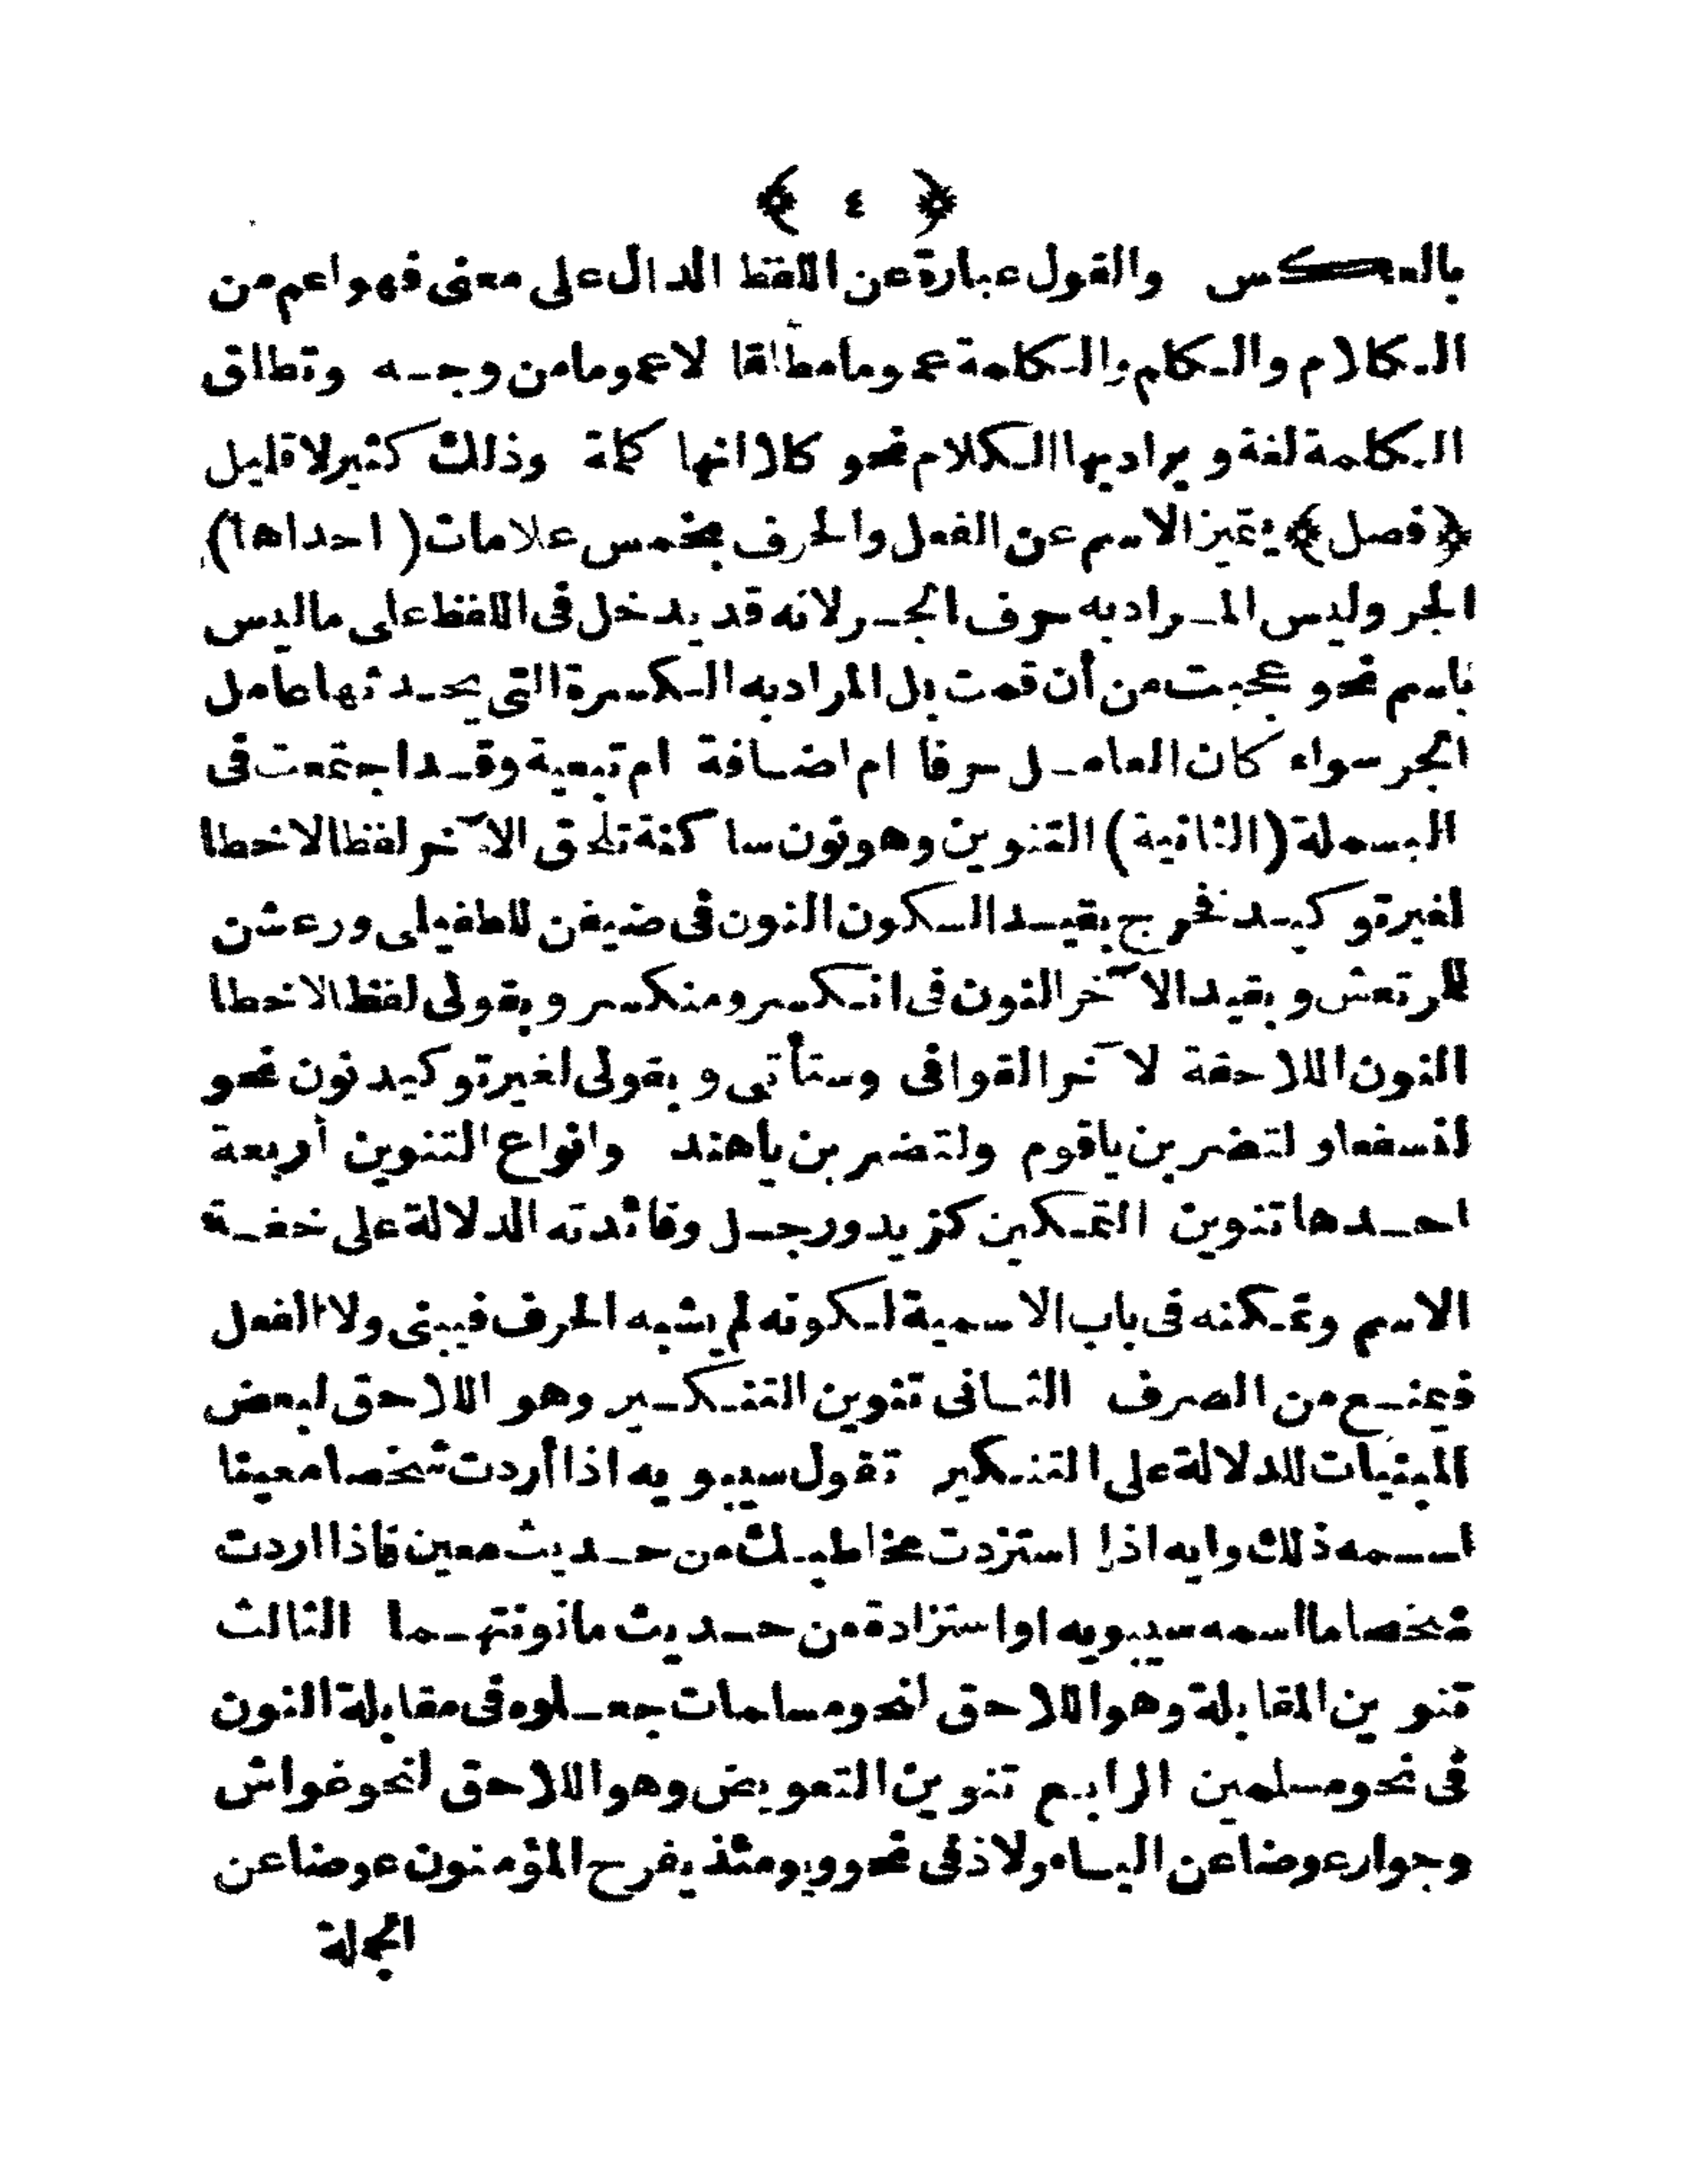 ﴿ ٤ ﴾
بالعكس والقول عبارة عن اللفظ الدال على معنى فهو اعم من
الكلام والكلم والكلمة عموما مطلقا لا عموما من وجه وتطلق
الكلمة لغة ويراد بها الكلام نحو كلا انها كلمة وذلك كثير لا قليل
﴿ فصل ﴾ يتميز الاسم عن الفعل والحرف بخمس علامات ( احداها )
الجر وليس المراد به حرف الجر لانه قد يدخل فى اللفظ على ما ليس
باسم نحو عجبت من أن قمت بل المراد به الكسرة التى يحدثها عامل
الجر سواء كان العامل حرفا ام اضافة ام تبعية وقد اجتمعت فى
البسملة ( الثانية ) التنوين وهو نون ساكنة تلحق الآخر لفظا لا خطا
لغير توكيد فخرج بقيد السكون النون فى ضيفن للطفيلى ورعشن
للمرتعش وبقيد الآخر النون فى انكسر ومنكسر وبقولى لفظا لا خطا
النون اللاحقة لآخر القوافى وستأتى وبقولى لغير توكيد نون نحو
لنسفعا ولتضربن ياقوم ولتضربن ياهند وانواع التنوين أربعة
احدها تنوين التمكين كزيد ورجل وفائدته الدلالة على خفة
الاسم وتمكنه فى باب الاسمية لكونه لم يشبه الحرف فيبنى ولا الفعل
فيمنع من الصرف الثانى تنوين التنكير وهو اللاحق لبعض
المبنيات للدلالة على التنكير تقول سيبويه اذا أردت شخصا معينا
اسمه ذلك وايه اذا استزدت مخاطبك من حديث معين فاذا اردت
شخصا ما اسمه سيبويه او استزادة من حديث ما نونتهما الثالث
تنوين المقابلة وهو اللاحق لنحو مسلمات جعلوه فى مقابلة النون
فى نحو مسلمين الرابع تنوين التعويض وهو اللاحق لنحو غواش
وجوار عوضا عن الياء ولاذ فى نحو ويومئذ يفرح المؤمنون عوضا عن
الجملة